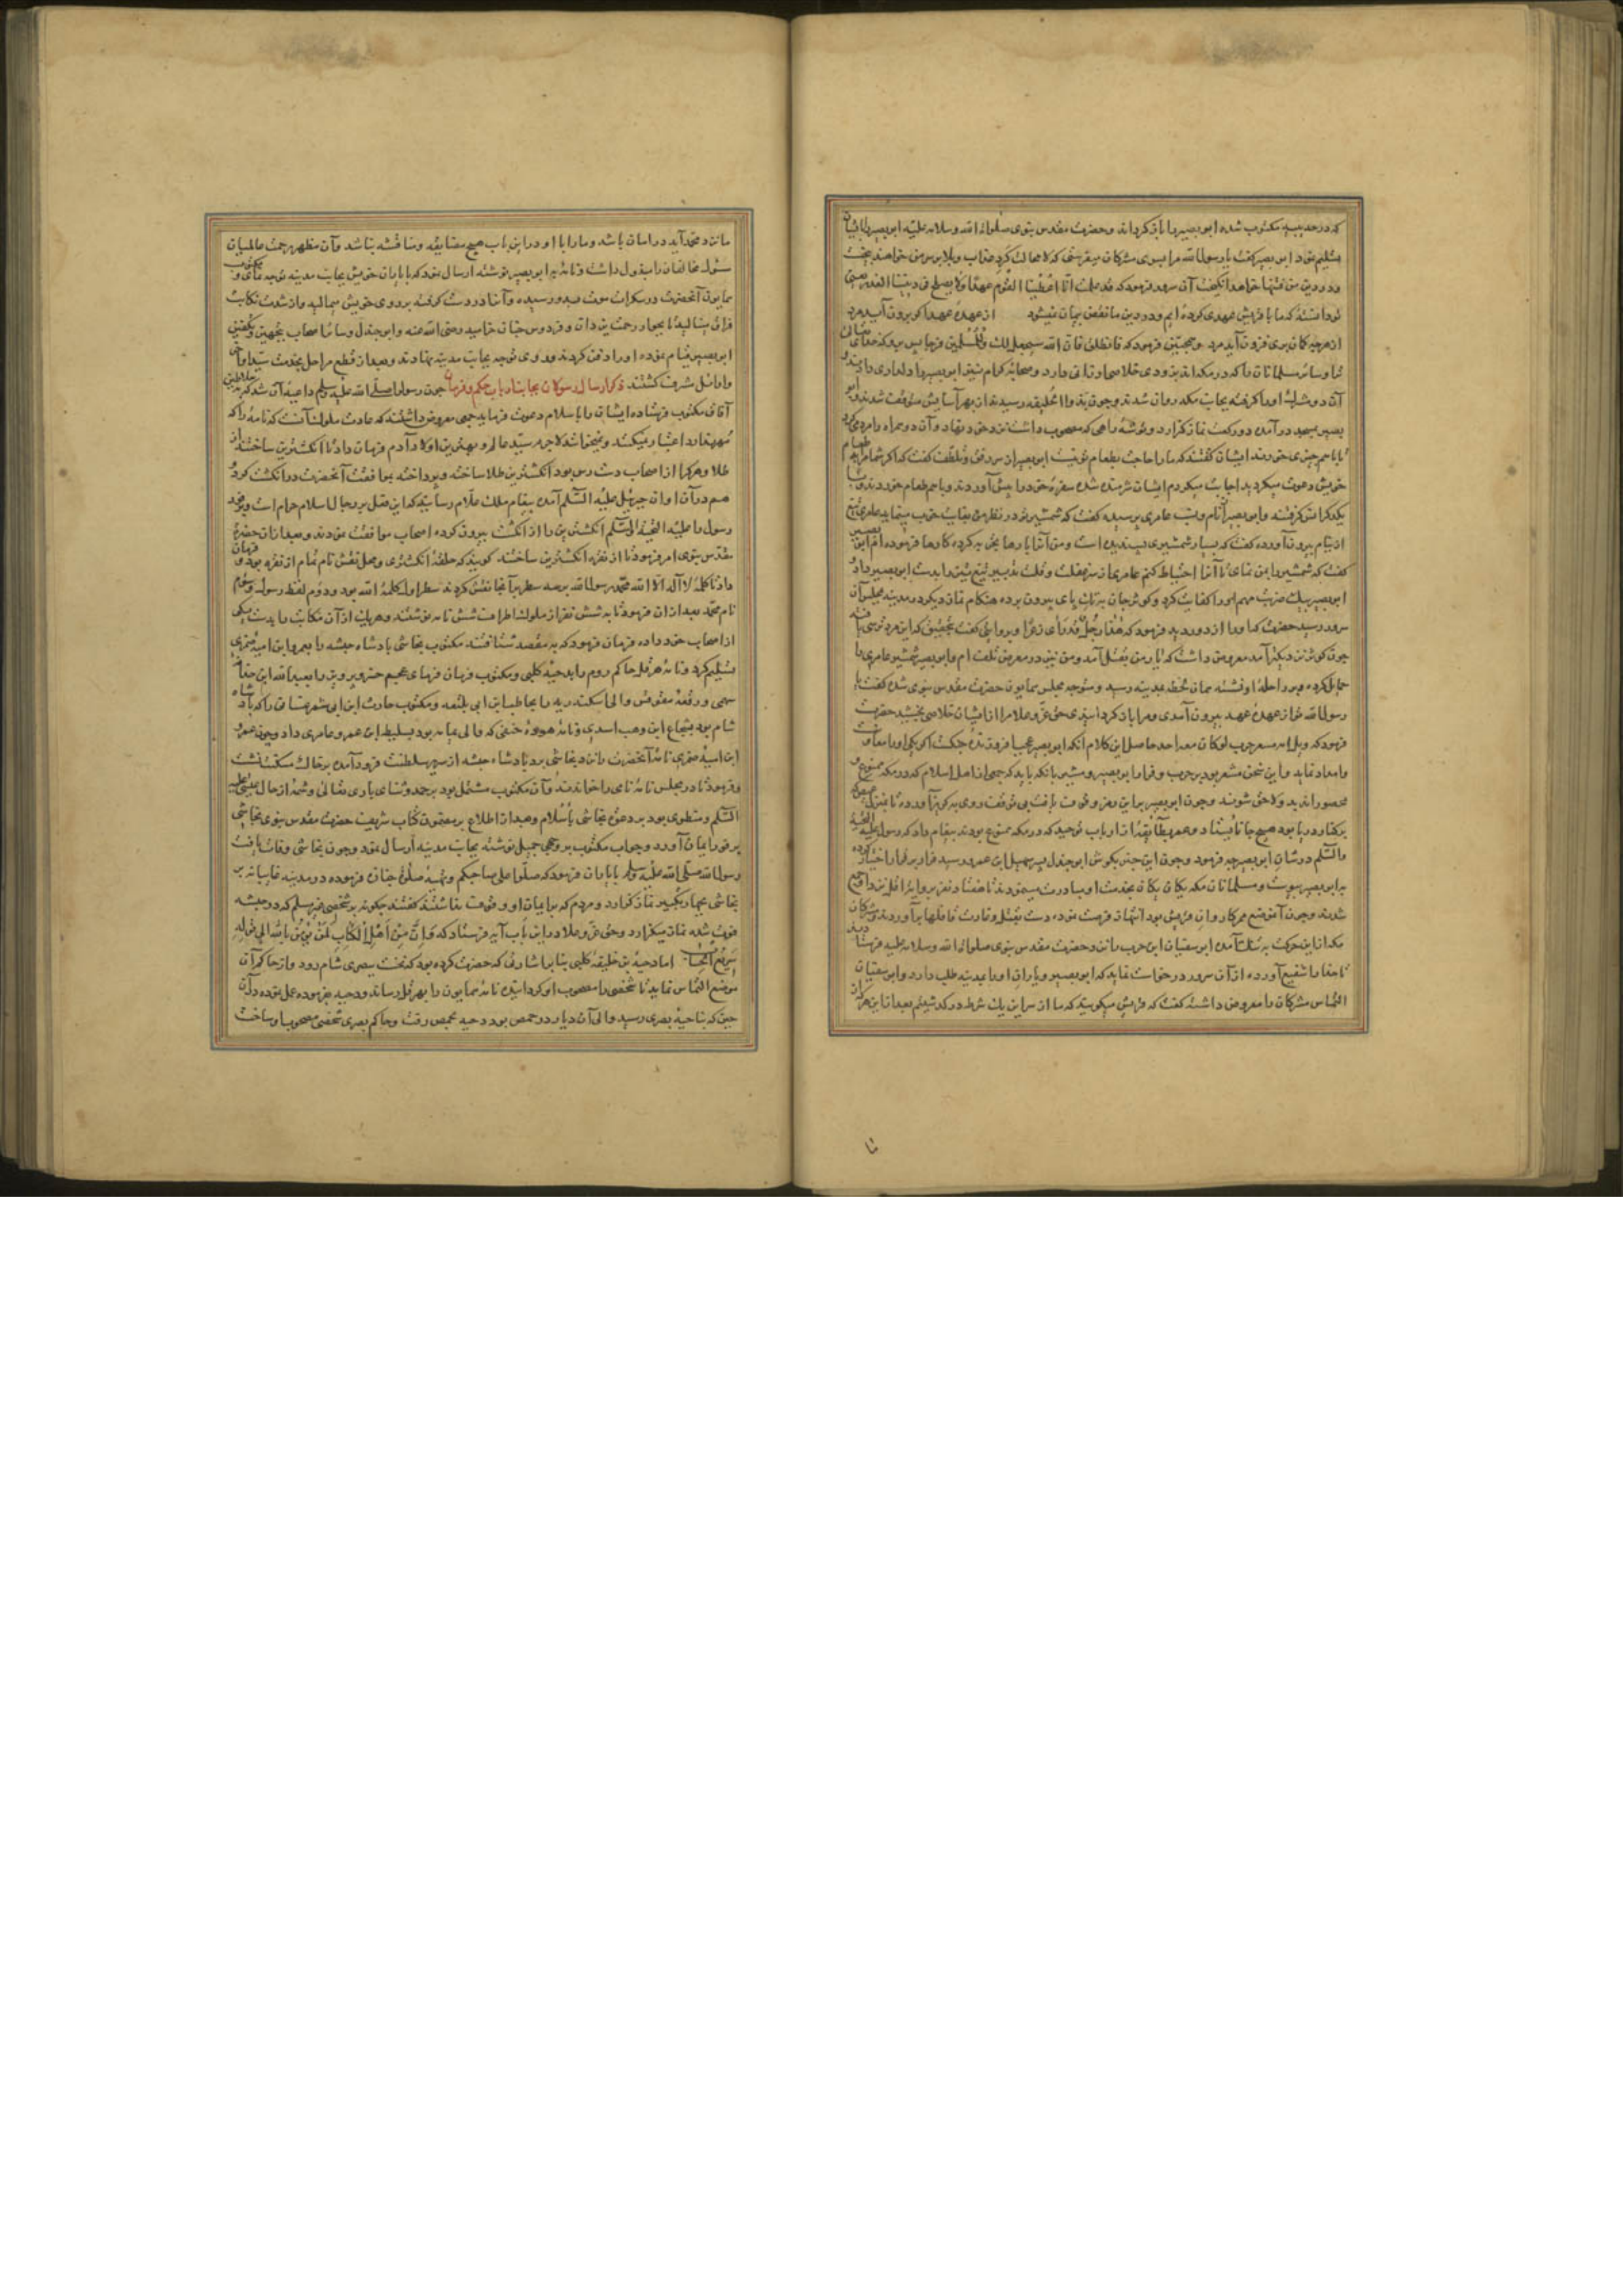 که در حدیبیه مکتوب شده ابو بصیر را باز گرداند و حضرت مقدس نبوی صلوات الله وسلامه علیه ابو بصیر را بایشان
تسلیم نمود ابو بصیر گفت یا رسول الله مرا بسوی مشرکان میفرستی که لا محاله
و در دین من فتنها خواهد انگیخت آن سرور فرمود که اتا اعطینا القوم عهدا ولا یصلح فی دیننا الغدر
تو دانسته که ما با قریش عهدی کرده ایم و در دین ما نقض پیمان نمیشود از عهده عهد اگر برون آید مرد
از هرچه گمان بری فزون آید مرد فرمود که فانطلق فان الله سیجعل لک وللمسلمین فرجا
ترا و سایر مسلمانان را که در مکه اند بزودی خلاصی ارزانی دارد و صحابه کرام نیز ابو بصیر را دلداری دادند و
آن دو اورا گرفته بجانب مکه روان شدند و چون بذوا الحلیفه رسیدند از بهر آسایش متوقف شدند و ابو
بصیر بمسجد درآمده دو رکعت نماز گزارد و توشه راهی که مصحوب داشت نزد خود نهاد و آن دو همراه را
تا باهم چیزی خورند ایشان گفتند که ما را حاجت بطعام تو نیست ابو بصیر از سر رفق و تلطف گفت که اگر شما مرا به طعام
خویش دعوت میکردید اجابت میکردم ایشان شرمنده شده سفره خود را پیش آوردند و باهم طعام خوردند و با
یکدیگر انس گرفته و ابو بصیر از نام و نسب عامری پرسیده گفت که شمشیر تو در نظر من بغایت خوب مینماید عامری تیغ
از نیام برون آورده گفت که بسیار شمشیری پسندیده است و من آنرا بارها تجربه کرده کارها فرموده ام ابو بصیر
گفت که شمشیر را بمن نمای تا آنرا احتیاط کنم عامری از سر غفلت و قلت تدبیر تیغ تیز را بدست ابو بصیر داد
ابو بصیر بیک ضربت مهم اورا کفایت کرد و کوثر جان به تک پای بیرون برده هنگام نماز دیگر در مدینه بمجلس آن
سرور رسید حضرت که اورا از دور دید فرمود که هذا رجل قد رأی ذعرا و بروایتی گفت بتحقیق که این مرد ترسی یافته
چون کوثر نزدیکتر آمد معروض داشت که یار من بقتل آمد و من نیز در معرض تلف ام و ابو بصیر شمشیر عامری را
حمایل کرده و بر راحله او نشسته همان لحظه بمدینه رسید و متوجه مجلس همایون حضرت مقدس نبوی شده گفت یا
رسول الله تو از عهده عهد بیرون آمدی و مرا باز گردانیدی حق عز و علا مرا از ایشان خلاصی بخشید حضرت
فرمود که ویل امه مسعر حرب لو کان معه احد حاصل این کلام آنکه ابو بصیر عجب افروزنده جنگست اگر یکی اورا معاونت
و امداد نماید و این سخن مشعر بود بر حرب و فرار ابو بصیر و مشیر بانکه باید که جمعی از اهل اسلام که در مکه ممنوع و
محصور اند بدو لاحق شوند و چون ابو بصیر براین رمز وقوف یافت بی توقف روی به گریز آورده تا بمنزل عیص که
بر کنار دریا بود هیچ جا نایستاد و عمر بطایفه از ارباب توحید که در مکه ممنوع بودند پیغام داد که رسول علیه التحیة
والسلم در شان ابو بصیر چه فرمود و چون این خبر بگوش ابو جندل پسر سهیل ابن عمرو رسید فرار بر قرار اختیار نموده
به ابو بصیر پیوست و مسلمانان مکه یکان یکان بخدمت او مبادرت مینمودند تا هفتاد نفر بروایتی اقل نزد او جمع
شدند و چون آن موضع ممر کاروان قریش بود انتهاز فرصت نموده دست بقتل و غارت قافلها برآوردند و مشرکان
مکه از این حرکت به تنگ آمده ابو سفیان ابن حرب را نزد حضرت مقدس نبوی صلوات الله وسلامه علیه فرستادند
تا شفیع آورده از آن سرور درخواست نماید که ابو بصیر و یاران اورا بمدینه طلب دارد و ابو سفیان
التماس مشرکان را معروض داشته گفت که قریش میگویند که ما از سر این یک شرط درگذشتیم بعد از این هرکه از
تا
ما نزد محمد آید در امان باشد و ما را با او در این باب هیچ مضایقه و مناقشه نباشد و آن مظهر رحمت عالمیان
مسئول مخالفان را مبذول داشت و نامه به ابو بصیر نوشته ارسال نمود که با یاران خویش بجانب مدینه توجه نمای و مکتوب
همایون آنحضرت در سکرات موت بدو رسیده و آنرا در دست گرفته بر روی خویش میمالید و از شدت نکایت
فراق مینالید تا بجوار رحمت یزدان و فردوس جنان خرامید رضی الله عنه و ابو جندل و سایر اصحاب بتجهیز و تکفین
ابو بصیر قیام نموده اورا دفن کردند و روی توجه بجانب مدینه نهادند و بعد از قطع مراحل بخدمت سید اواخر
و اوائل مشرف گشتند ذکر ارسال رسولان بجانب ارباب حکم و فرمان چون رسول ما صلی الله علیه وسلم داعیه آن شد که بسلاطین
آفاق مکتوب فرستاده ایشان را باسلام دعوت فرماید جمعی معروض داشتند که عادت ملوک آنست که نامه را که
مهر ندارد اعتبار نمیکنند و نمیخوانند لاجرم سید عالم و بهترین اولاد آدم فرمان داد تا انگشترین ساختند از
طلا و هر کرا از اصحاب دست رس بود انگشترین طلا ساخته و پرداخته بموافقت آنحضرت در انگشت کرد
هم در آن اوان جبرئیل علیه السلم آمده پیغام ملک علام رسانید که این فعل بر رجال اسلام حرام است
رسول ما علیه التحیة والسلم انگشترین را از انگشت بیرون کرده اصحاب موافقت نمودند و بعد از آن حضرت
مقدس نبوی امر فرمود تا از نقره انگشترین ساختند گویند که حلقه انگشتری و محل نقش نام تمام از نقره بود و فرمان
داد تا کلمه لا اله الا الله محمد رسول الله بر سه سطر بر آنجا نقش کردند سطر اول کلمه الله بود و دوم لفظ رسول و سیوم
نام محمد بعد از آن فرمود تا به شش نفر از ملوک اطراف شش نامه نوشتند و هر یک از آن مکاتبات را بدست یکی
از اصحاب خود داده فرمان فرمود که به مقصد شتافتند مکتوب نجاشی پادشاه حبشه را بعمرو ابن امیه ضمری
تسلیم کرد و نامه هرقل حاکم روم را بدحیه کلبی و مکتوب فرمان فرمای عجم خسرو پرویز را بعبد الله ابن حذافه
سهمی و رقعه مقوقس والی اسکندریه را بحاطب ابن ابی بلتعه و مکتوب حارث ابن ابی شمر غسانی را که پادشاه
شام بود بشجاع ابن وهب اسدی و نامه هوذه حنفی که والی یمامه بود بسلیط ابن عمرو عامری داد و چون عمرو
ابن امیه ضمری نامه آنحضرت را نزد نجاشی برد پادشاه حبشه از سریر سلطنت فرود آمده بر خاک مسکنت نشست
و فرمود تا در مجلس نامه نامی را خواندند و آن مکتوب مشتمل بود بر حمد و ثنای باری تعالی و شمه از حال عیسی علیه
السلم و منطوی بود بر دعوت نجاشی باسلام و بعد از اطلاع بر مضمون کتاب شریف حضرت مقدس نبوی نجاشی
بر فور ایمان آورد و جواب مکتوب بر وجهی جمیل نوشته بجانب مدینه ارسال نمود و چون نجاشی وفات یافت
رسول الله صلی الله علیه وسلم با یاران فرمود که صلوا علی صاحبکم و تهیه صلوة جنازه فرموده در مدینه غایبانه بر
نجاشی بچهار تکبیر نماز گزارد و مردم که بر ایمان او وقوف نداشتند گفتند چگونه بر شخصی غیر مسلم که در حبشه
فوت شده نماز میگزارد و حق عز و علا در این باب آیه فرستاد که وَاِنَّ مِنْ اَهْلِ الْکِتَابِ لَمَنْ یُؤْمِنُ بِالله الی قوله
سَرِیعُ الْحِسَاب اما دحیه بن خلیفه کلبی بنا بر اشارتی که حضرت کرده بود که نخست ببصری شام رود و از حاکم آن
موضع التماس نماید تا شخصی را مصحوب او گردانیده نامه همایون را بهرقل رساند و دحیه بفرموده عمل نموده در آن
حین که بناحیه بصری رسید والی آن دیار در حمص بود دحیه بحمص رفت و حاکم بصری شخصی مصحوب او ساخت